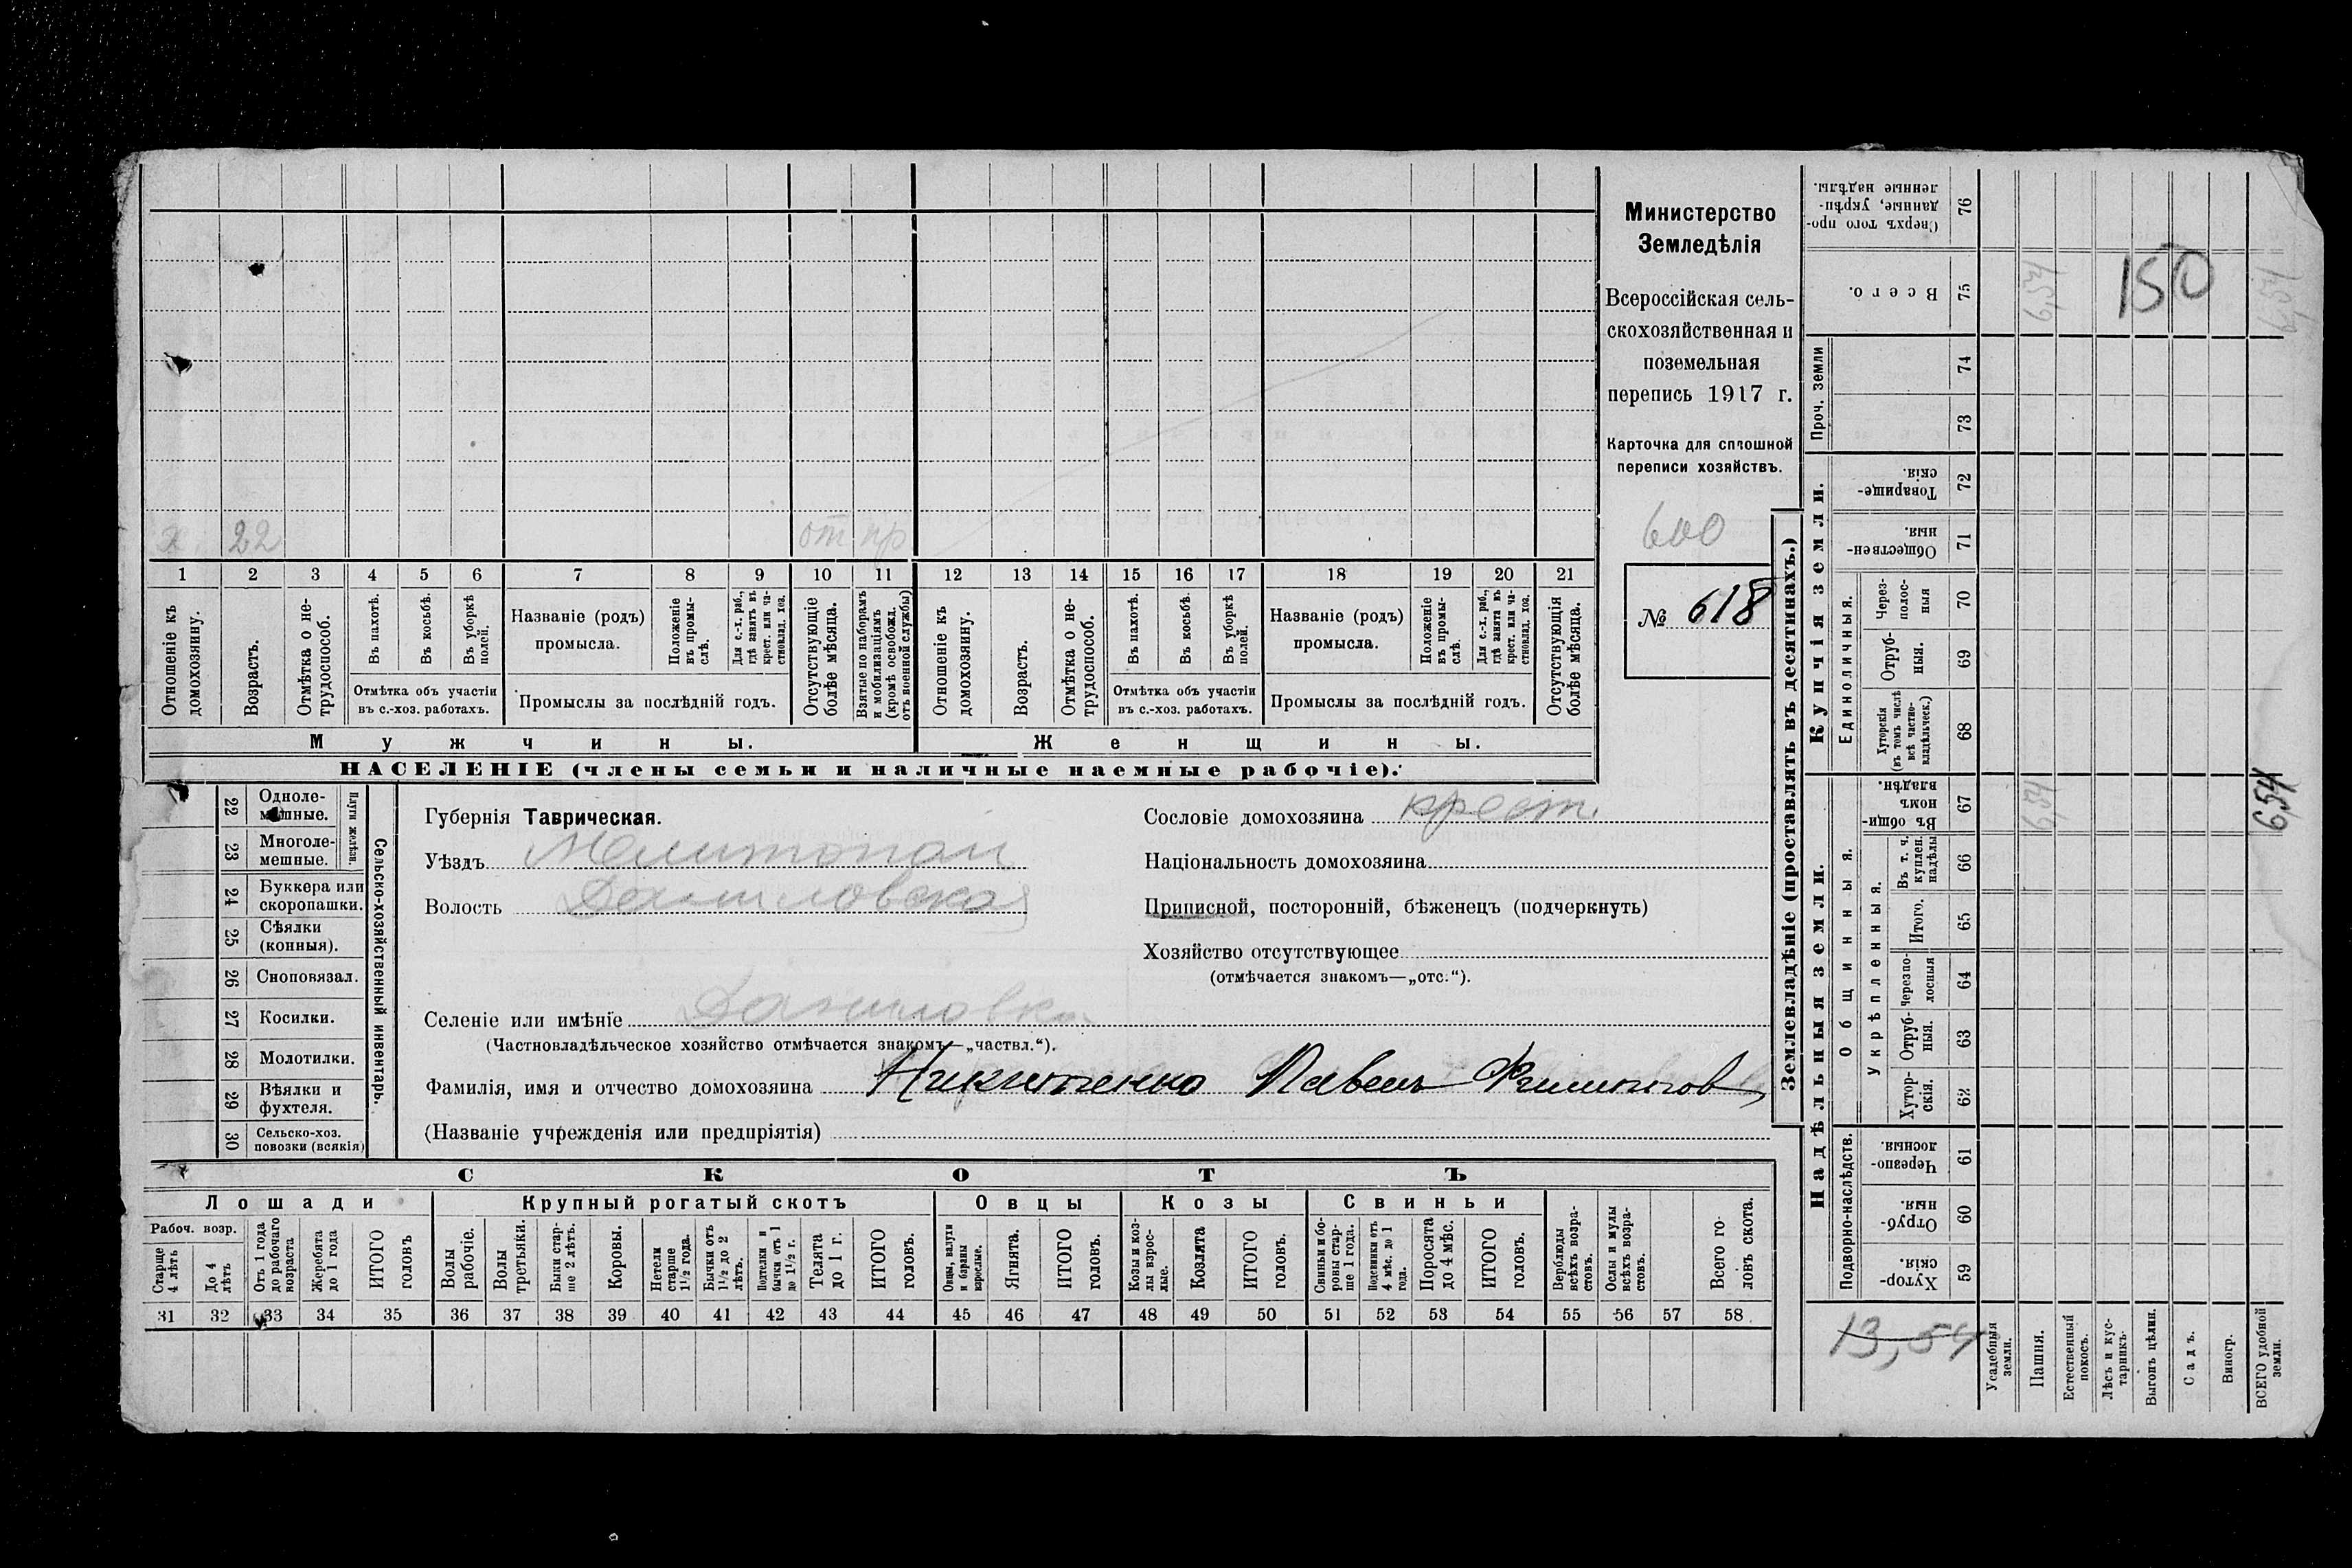 Министерство
Земледѣлія
Всероссійская сель-
скохозяйственная и
поземельная
перепись 1917 г.
Карточка для сплошной
переписи хозяйствъ.
600
№ 618
х. 22 от пр
1 2 3 4 5 6 7 8 9 10 11 12 13 14 15 16 17 18 19 20 21
Отношеніе къ домохозяину.
Возрастъ.
Отмѣтка о не-трудоспособ.
Въ пахотѣ.
Въ косьбѣ.
Въ уборкѣ полей.
Отмѣтка объ участіи
въ с.-хоз. работахъ.
Названіе (родъ)
промысла.
Положеніе въ промы-слѣ.
Для с.-х. раб., гдѣ занятъ въ крест. или ча-стновлад. хоз.
Промыслы за послѣдній годъ.
Отсутствующіе болѣе мѣсяца.
Взятые по наборамъ и мобилизаціямъ (кромѣ освобожд. отъ военной службы)
Отношеніе къ домохозяину.
Возрастъ.
Отмѣтка о не-трудоспособ.
Въ пахотѣ.
Въ косьбѣ.
Въ уборкѣ полей.
Отмѣтка объ участіи
въ с.-хоз. работахъ.
Названіе (родъ)
промысла.
Положеніе въ промы-слѣ.
Для с.-х. раб., гдѣ занята въ крест. или ча-стновлад. хоз.
Промыслы за послѣдній годъ.
Отсутствующія болѣе мѣсяца.
Мужчины.
Женщины.
НАСЕЛЕНІЕ (члены семьи и наличные наемные рабочіе).
22 Одноле-мешные.
23 Многоле-мешные.
Плуги желѣзн.
24 Буккера или скоропашки.
25 Сѣялки (конныя).
26 Сноповязал.
27 Косилки.
28 Молотилки.
29 Вѣялки и фухтеля.
30 Сельско-хоз. повозки (всякія)
Сельско-хозяйственный инвентарь.
Губернія Таврическая.
Уѣздъ Мелитопол
Волость Даниловская
Селеніе или имѣніе Даниловка
(Частновладѣльческое хозяйство отмѣчается знакомъ—„частвл.“).
Фамилія, имя и отчество домохозяина Никитенко Павелъ Филиппов
(Названіе учрежденія или предпріятія)
Сословіе домохозяина крест.
Національность домохозяина
Приписной, посторонній, бѣженецъ (подчеркнуть)
Хозяйство отсутствующее
(отмѣчается знакомъ—„отс.“).
СКОТЪ
Лошади
Крупный рогатый скотъ
Овцы
Козы
Свиньи
Рабоч. возр.
Старше 4 лѣтъ
До 4 лѣтъ
Отъ 1 года до рабочаго возраста
Жеребята до 1 года
ИТОГО головъ
Волы рабочіе.
Волы третьяки.
Быки стар-ше 2 лѣтъ.
Коровы.
Нетели старше 1½ года.
Бычки отъ 1½ до 2 лѣтъ.
Подтелки и бычки отъ 1 до 1½ г.
Телята до 1 г.
ИТОГО головъ.
Овцы, валухи и бараны взрослые.
Ягнята.
ИТОГО головъ.
Козы и коз-лы взрос-лые.
Козлята
ИТОГО головъ.
Свиньи и бо-ровы стар-ше 1 года.
Подсвинки отъ 4 мѣс. до 1 года.
Поросята до 4 мѣс.
ИТОГО головъ.
Верблюды всѣхъ возра-стовъ.
Ослы и мулы всѣхъ возра-стовъ.
Всего го-ловъ скота.
31 32 33 34 35 36 37 38 39 40 41 42 43 44 45 46 47 48 49 50 51 52 53 54 55 56 57 58
Землевладѣніе (проставлять въ десятинахъ.)
Сверхъ того про-данные, укрѣп-ленные надѣлы. 76
Всего. 75
Проч. земли
74
73
Купчія земли.
Товарище-скія. 72
Обществен-ныя. 71
Единоличныя.
Через-полос-ныя 70
Отруб-ныя. 69
Хуторскія (въ томъ числѣ всѣ частно-владѣльческ.) 68
Надѣльныя земли.
Общинныя.
Въ общи-номъ владѣн. 67
Укрѣпленныя.
Въ т. ч. куплен. надѣлы 66
Итого. 65
Черезпо-лосныя 64
Отруб-ныя. 63
Хутор-скія. 62
Подворно-наслѣдств.
Черезпо-лосныя. 61
Отруб-ныя. 60
Хутор-скія. 59
13,54
Усадебная земли.
Пашня.
Естественный покосъ.
Лѣсъ и кус-тарникъ.
Выгонъ цѣлин.
Садъ.
Виногр.
ВСЕГО удобной земли.
150
654
654
654
6,54